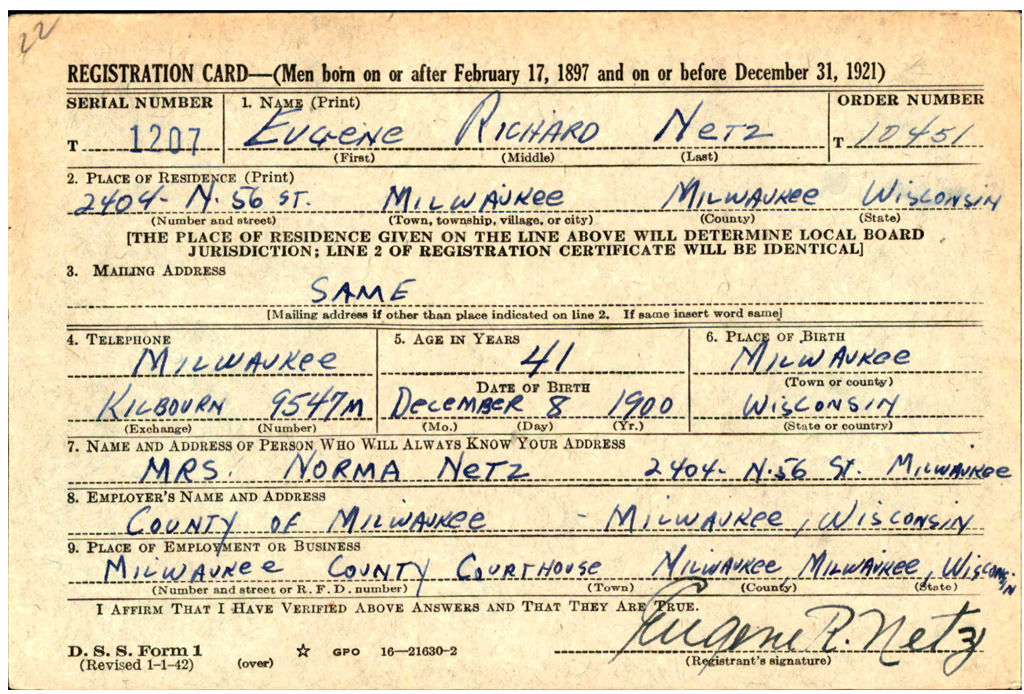 22
REGISTRATION CARD—(Men born on or after February 17, 1897 and on or before December 31, 1921)
SERIAL NUMBER 1. NAME (Print) ORDER NUMBER
T 1207 EUGENE RICHARD NETZ T 10451
(First) (Middle) (Last)
2. PLACE OF RESIDENCE (Print)
2404- N. 56 ST. MILWAUKEE MILWAUKEE WISCONSIN
(Number and street) (Town, township, village, or city) (County) (State)
[THE PLACE OF RESIDENCE GIVEN ON THE LINE ABOVE WILL DETERMINE LOCAL BOARD
JURISDICTION; LINE 2 OF REGISTRATION CERTIFICATE WILL BE IDENTICAL]
3. MAILING ADDRESS
SAME
[Mailing address if other than place indicated on line 2. If same insert word same]
4. TELEPHONE 5. AGE IN YEARS 6. PLACE OF BIRTH
MILWAUKEE 41 MILWAUKEE
DATE OF BIRTH (Town or county)
KILBOURN 9547M DECEMBER 8 1900 WISCONSIN
(Exchange) (Number) (Mo.) (Day) (Yr.) (State or country)
7. NAME AND ADDRESS OF PERSON WHO WILL ALWAYS KNOW YOUR ADDRESS
MRS. NORMA NETZ 2404- N. 56 St. MILWAUKEE
8. EMPLOYER'S NAME AND ADDRESS
COUNTY OF MILWAUKEE - MILWAUKEE, WISCONSIN
9. PLACE OF EMPLOYMENT OR BUSINESS
MILWAUKEE COUNTY COURTHOUSE MILWAUKEE, MILWAUKEE, WISCONSIN
(Number and street or R. F. D. number) (Town) (County) (State)
I AFFIRM THAT I HAVE VERIFIED ABOVE ANSWERS AND THAT THEY ARE TRUE.
Eugene R. Netz
D. S. S. Form 1
(Revised 1-1-42) (over) ☆ GPO 16—21630-2 (Registrant's signature)